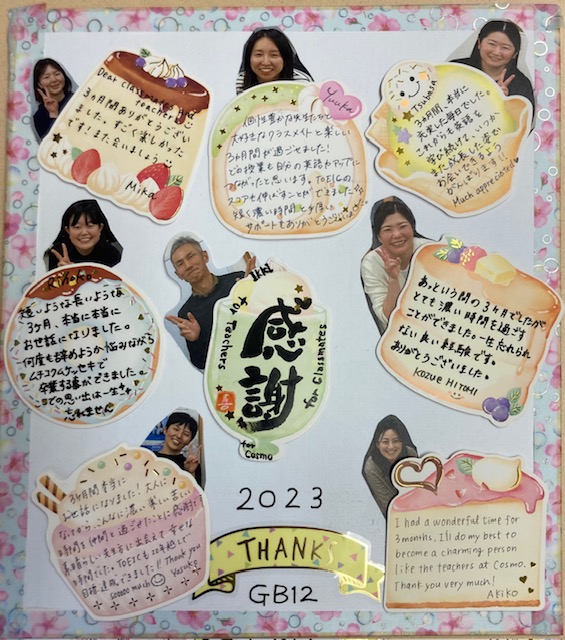 Dear classmates and
teachers
3ヵ月間ありがとうござい
ました。すごく楽しかった
です！また会いましょう
Mika
Yuuka
個性豊かな先生たちと
大好きなクラスメイトと楽しい
3か月間が過ごせました！
どの授業も自分の英語力UPに
つながったと思います。TOEICの
スコアも伸ばすことができました
短く濃い時間と手厚い
サポートをありがとうございました
Tsubasa
3か月間、本当に
充実した毎日でした。
これからも英語を
学び続けて、いつか
また成長した姿で
お会いできるよう
がんばります！
Much appreciated
Rihoko
短いような長いような
3ヶ月、本当に本当に
お世話になりました。
何度も辞めようか悩みながら
ムチコクムケッセキで
卒業する事ができました。
ここでの思い出は一生
忘れません
Ikki
for Teachers
感謝
for Classmates
for Cosmo
あっという間の3ヶ月でしたが
とても濃い時間を過ごす
ことができました。一生忘れられ
ない良い経験です。
ありがとうございました。
KOZUE HITOMI
3ヶ月間本当に
お世話になりました！大人に
なってからこんなに濃く、楽しい苦しい
時間を仲間と過ごせたことに感謝!!
素晴らしい先生方に出会えて幸せな
時間でした。TOEICも
目標達成できました!! Thank you
sooooo much Yasuko
2023
THANKS
GB12
I had a wonderful time for
3months. I'll do my best to
become a charming person
like the teachers at Cosmo.
Thank you very much!
Akiko